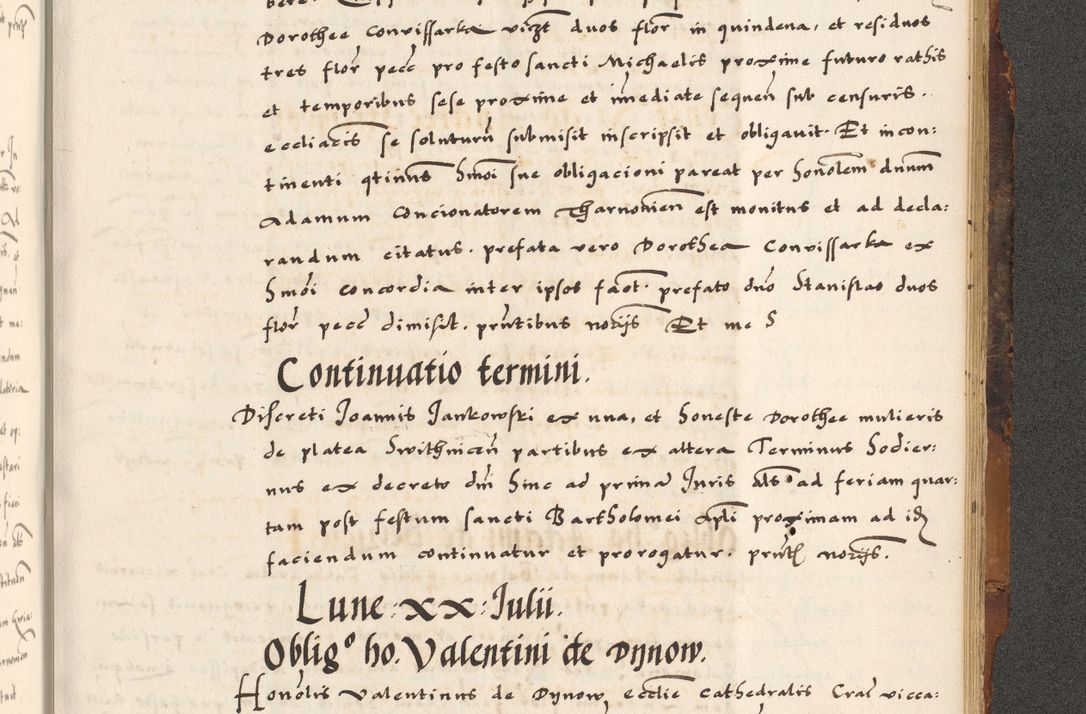 Dorothee Convissarka viczt duos florͫ in quindena, et residuos
tres florͫ pecc̄ pro festo sancti Michaelis proxime futuro rathis
et temporibus sese proxime et im̄ediate sequen̄ sub censuris
eccliac̄is se soluturū submisit inscripsit et obligauit. Et incon:
tinenti qtinus hm̄oi sue obligacioni pareat per honōlem dnum
Adamum Concionatorem Tharnouien̄ est monitus et ad decla:
randum citatus. prefata vero Dorothea Convissarka ex
hmōi concordia inter ipsos fact. prefato dn̄o Stanislao duos
florͫ pecc̄ dimisit. prn̄tibus notijs Et me S
Continuatio termini.
Discreti Joannis Jankowski ex una, et honeste Dorothee mulieris
de platea Swithincen̄ partibus ex altera Terminus hodier:
nus ex decreto dn̄i hinc ad primā Juris als ad feriam quar:
tam post festum sancti Bartholomei Apli proximam ad id
faciendum continuatur et prorogatur. prn̄t notijs.
Lune: xx: Julii.
Oblig⁰ ho. Valentini de Dynow.
Honōlis Valentinus de Dynow, ecclie cathedralis Crac̄ vicca: